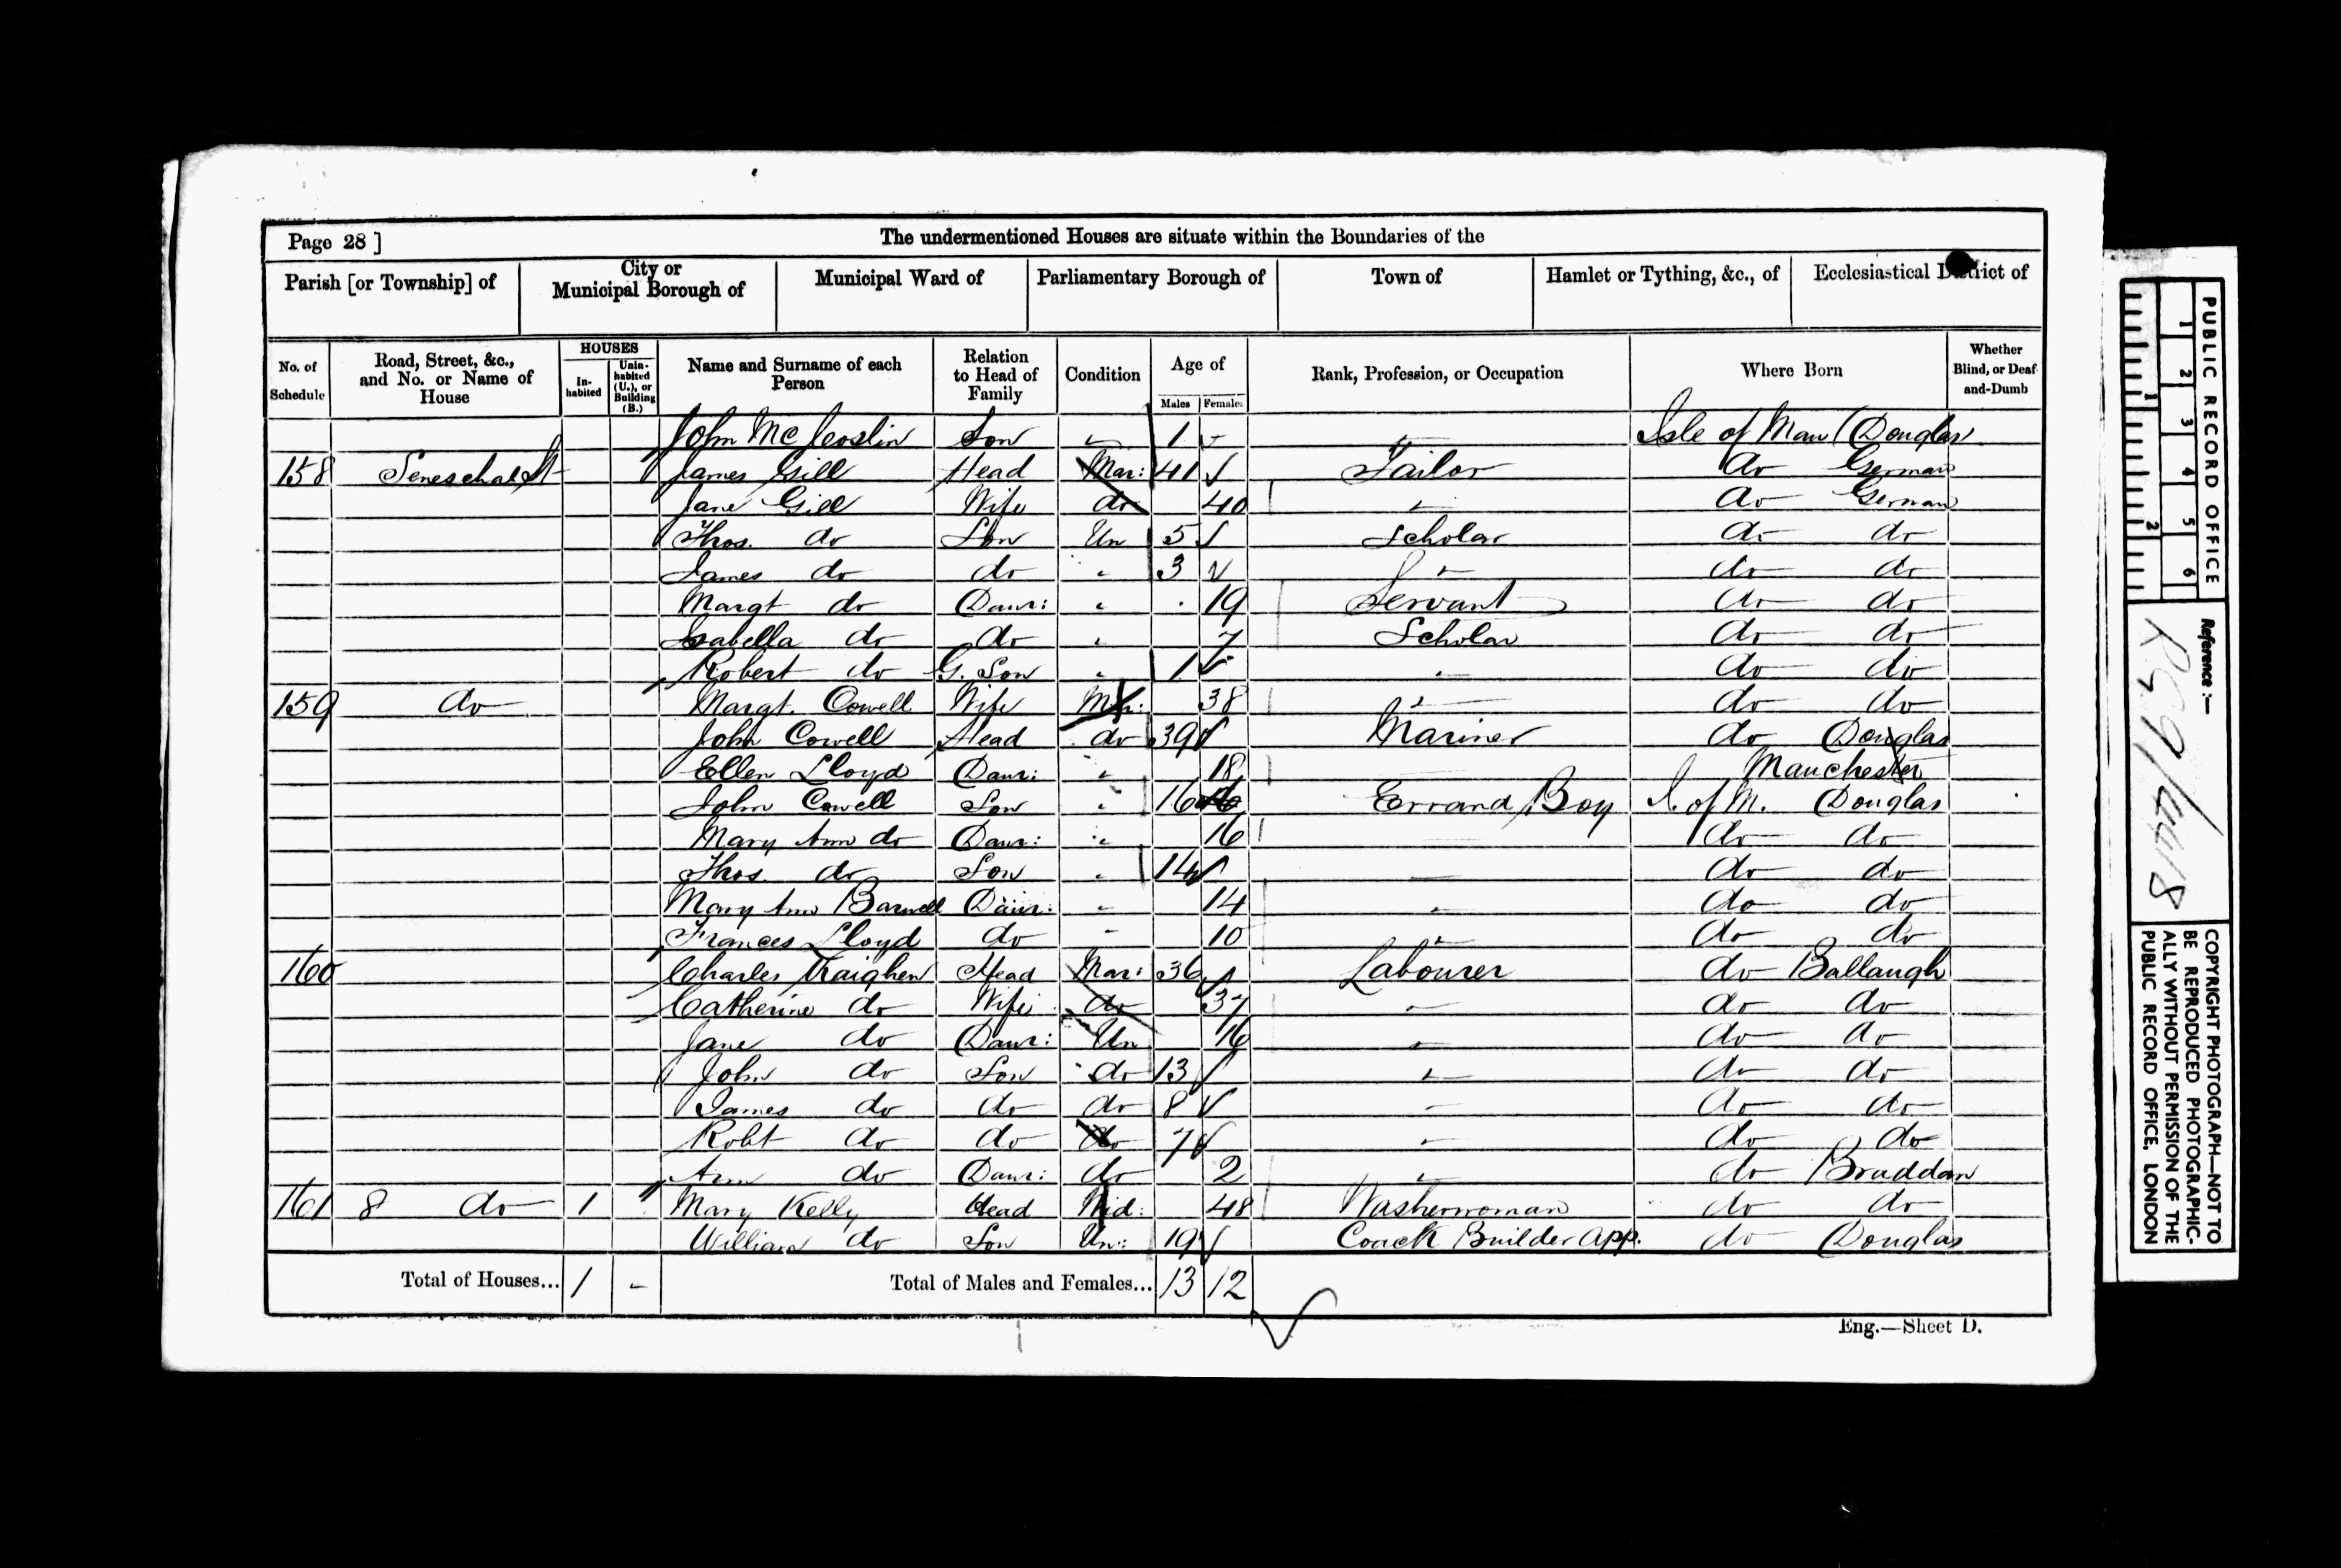 Page 28 ] The undermentioned Houses are situate within the Boundaries of the
Parish [or Township] of City or Municipal Borough of Municipal Ward of Parliamentary Borough of Town of Hamlet or Tything, &c., of Ecclesiastical District of
No. of Schedule Road, Street, &c., and No. or Name of House HOUSES Inhabited Uninhabited (U.), or Building (B.) Name and Surname of each Person Relation to Head of Family Condition Age of Males Females Rank, Profession, or Occupation Where Born Whether Blind, or Deaf-and-Dumb
John Son 1 Isle of Man (Douglas
158 Seneschal St James Gill Head Mar: 41 Tailor do German
Jane Gill Wife do 40 do German
Thos. do Son Un 5 Scholar do do
James do do 3 do do
Margt do Daur: 19 Servant do do
Isabella do do 7 Scholar do do
Robert do G. Son 1 do do
159 do Margt. Cowell Wife Mar: 38 do do
John Cowell Head do 39 Mariner do Douglas
Ellen Lloyd Daur: 18 Manchester
John Cowell Son 16 Errand Boy I. of M. Douglas
Mary Ann do Daur: 16 do do
Thos. do Son 14 do do
Mary Ann Barwell Daur: 14 do do
Frances Lloyd do 10 do do
160 Charles Kraighen Head Mar: 36 Labourer do Ballaugh
Catherine do Wife do 37 do do
Jane do Daur: Un 16 do do
John do Son do 13 do do
James do do do 8 do do
Robt do do do 7 do do
Ann do Daur: do 2 do Braddan
161 8 do 1 Mary Kelly Head Wid: 48 Washerwoman do do
William do Son Un: 19 Coach Builder App. do Douglas
Total of Houses... 1 - Total of Males and Females... 13 12
Eng.—Sheet D.
PUBLIC RECORD OFFICE
1 2 3 4 5 6
1 2
Reference :—
RG 9/4418
COPYRIGHT PHOTOGRAPH—NOT TO
BE REPRODUCED PHOTOGRAPHIC-
ALLY WITHOUT PERMISSION OF THE
PUBLIC RECORD OFFICE, LONDON